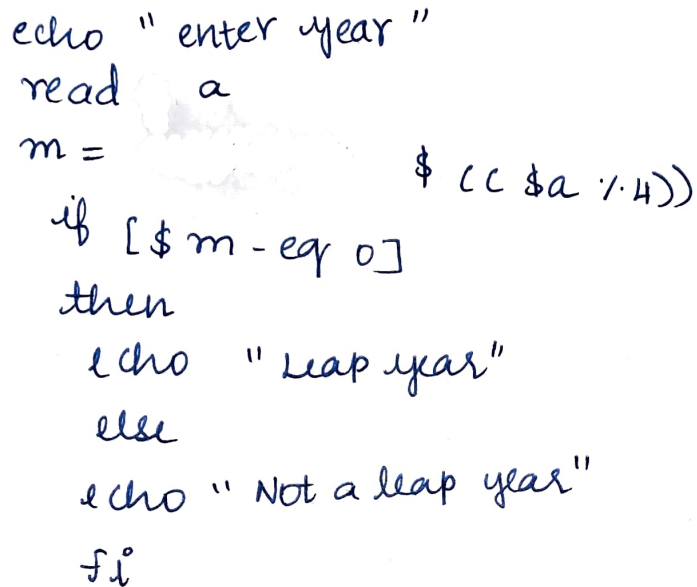 echo " enter year "
read a
m = $ (( $a % 4))
if [ $ m - eq 0 ]
then
echo " Leap year"
else
echo " Not a leap year"
fi